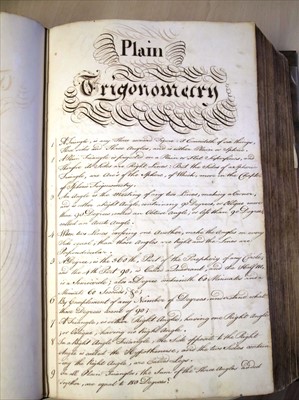 Plain
Trigonometry
1 A Triangle, is any three cornered Figure; it Consisteth of six things,
Three Sides and three Angles, and is either Plain or Spheric.
2 A Plain Triangle is projected on a Plain or Flat Superficies, and
Sides are Right Lines: But the Sides of a Spherical
Triangle, are Arcs of the Sphere, of Which, more in the Chapter
of Spheric Trigonometry.
3 An Angle is the Meeting of any two Lines, making a Corner,
and is either Right Containing 90 Degrees, or Oblique more
than 90 Degrees called an Obtuse Angle, or less than 90 Degrees,
called an Acute Angle.
4 When two Lines crossing one Another, make the Angles on every
Side equal, then those Angles are Right and the Lines are
Perpendicular.
5 A Degree, is the 360th Part of the Periphery of any Circle,
and the 4th Part 90, is Called a Quadrant, and the Half
is a Semicircle; also a Degree Containeth 60 Minutes and a
Minute 60 Seconds, &c
6 By Compliment of any Number of Degrees and Minutes
those Degrees Want of 90;
7 A Triangle, is either Right Angled, having one Right Angle;
or Oblique, having no Right Angle.
8 In a Right Angle Triangle, the Side opposite to the Right
Angle is called the Hypothenuse, and the two Sides
the Right Angle are Called Legs.
9 In all Plain Triangles; the Sum of the three Angles Added
together, are equal to 180 Degrees.